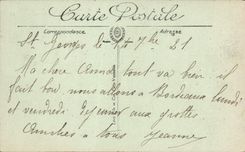 Carte Postale
Correspondance
Adresse
St Georges le 14 7bre 21
Ma chère Anna tout va bien il
fait bon nous allons à Bordeaux lundi
et vendredi déjeuner aux grottes
à tous Jeanne